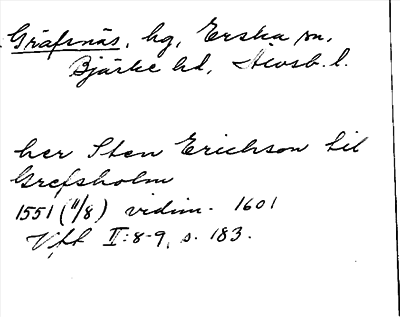 Gräfsnäs, hg, Erska sn,
Bjärke hd, Älvsb. l.
her Sten Erichson til
Grefsholm
1551 (11/8) vidim. 1601
Vfl II:8-9, s. 183.